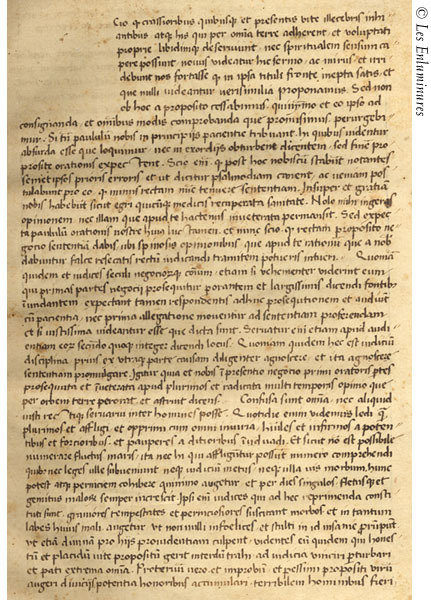 Cio q crassioribus quibusq et presentis vite illecebris inhi
antibus atq his qui per omia terre adherent et voluptati
proprie libidinisq deserviunt nec spiritalem sensum ca
pere possunt novus videatur hic sermo ac mirus et irri
debunt nos fortasse q in ipsa tituli fronte inepta satis et
que nulli videantur verisimilia proponamus Sed non
eb hoc a proposito cessabimus quinimo et eo ipso ad
consignanda et omnibus modis comprobanda que promisimus perurgebi
mur Si tn paululum nobis in principijs pacientie tribuant In quibus videntur
absurda esse que loquimur nec in exordijs obturbent dicentem sed finem pro
posite orationis expectent Scio eni q post hoc nobiscum stabunt notantes
semetipsos prioris erroris et ut dicitur psalmodiam canent ac veniam pos
tulabunt pro eo q minus rectam nunc tenuere sententiam Insuper et gratiam
nobis habebunt sicut egri quiq medicis recuperata sanitate Nolo mihi ingeras
opinionem nec illam que apud te hactenus inveterata permansit Sed expec
ta paululum orationis nostre finem luctamen et nunc scio q rectam proposito ne
gocio sententiam dabis ubi spretis opinionibus que apud te ratione que a nob
dabuntur falce resecatis recta iudicandi tramitem potueris intueri Quoniam
quidem et iudices seculi negociorq eorum etiam si vehementer viderint eum
qui primas partes negocij prosequitur perorantem et largissimis dicendi fontib
inundantem expectant tamen respondentis adhuc prosequtionem et audiunt
cum pacientia nec prima allegatione moventur ad sententiam proferendam
et si iustissima videantur esse que dicta sunt Servatur eni etiam apud audi
entiam eor secundo quoq integer dicendi locus Quoniam quidem hec est iudicium
disciplina prius ex utraq parte causam diligenter agnoscere et ita agnoscere
sententiam promulgare Igitur quia et nobis in presentio negocio primi oratoris ptes
prosequuta est inveterata apud plurimos et radicata multi temporis opinio que
per orbem terre perorat et astruit dicens Confusa sunt omia nec aliquid
iusti rectiq servari inter homines posse Quotidie enim videmus ledi q
plurimos et affligi et opprimi cum omni iniuria humiles et infirmos a poten
tibus et forcioribus et pauperes a ditioribus invadi Et sicut non est possibile
numerare fluctus maris ita nec hi qui affliguntur possunt numero comprehendi
quibus nec leges ulle subveniunt neq iudicium metus neq ulla vis morbum hunc
potest atq perniciem cohibere quinimo augetur et per dies singulos fletusq et
gemitus maiore semper increscit Ipsi eni iudices qui ad hec reprimenda consti
tuti sunt graviores tempestates et perniciosiores suscitant morbos et in tantum
labes huius mali augetur ut non nulli infelices et stulti in id insanie prorumpant
ut etiam divinam pro hijs providentiam culpent videntes eum quidem qui hones
tum et placidum vite propositum gerit interdum trahi ad iudicia vinciri perturbari
et pati extrema omia Protervum vero et improbum et pessimi propositi virum
augeri divicijs potentia honoribus accumulari terribilem hominibus fieri
© Les Enluminures